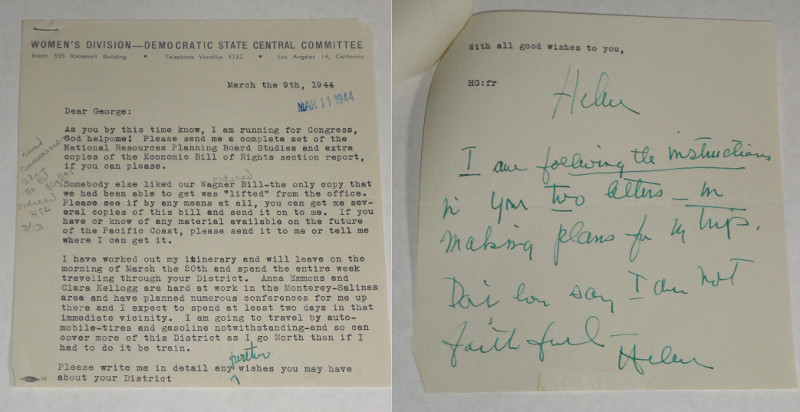 WOMEN'S DIVISION—DEMOCRATIC STATE CENTRAL COMMITTEE
Room 535 Roosevelt Building • Telephone Vandike 4152 • Los Angeles 14, California
March the 9th, 1944
MAR 11 1944
Dear George:
As you by this time know, I am running for Congress,
God helpome! Please send me a complete set of the
National Resources Planning Board Studies and extra
copies of the Economic Bill of Rights section report,
if you can please.
ordered
Somebody else liked our Wagner Bill-the only copy that
we had been able to get was "lifted" from the office.
Please see if by any means at all, you can get me sev-
eral copies of this bill and send it on to me. If you
have or know of any material available on the future
of the Pacific Coast, please send it to me or tell me
where I can get it.
ordered
3/13
I have worked out my itinerary and will leave on the
morning of March the 20th and spend the entire week
traveling through your District. Anna Emmons and
Clara Kellogg are hard at work in the Monterey-Salinas
area and have planned numerous conferences for me up
there and I expect to spend at least two days in that
immediate vicinity. I am going to travel by auto-
mobile-tires and gasoline notwithstanding-and so can
cover more of this District as I go North then if I
had to do it be train.
further
Please write me in detail any wishes you may have
about your District
With all good wishes to you,
HG:fr
Helen
I am following the instructions
in your two letters — in
making plans for my trip.
Don't ever say I am not
faithful —
Helen